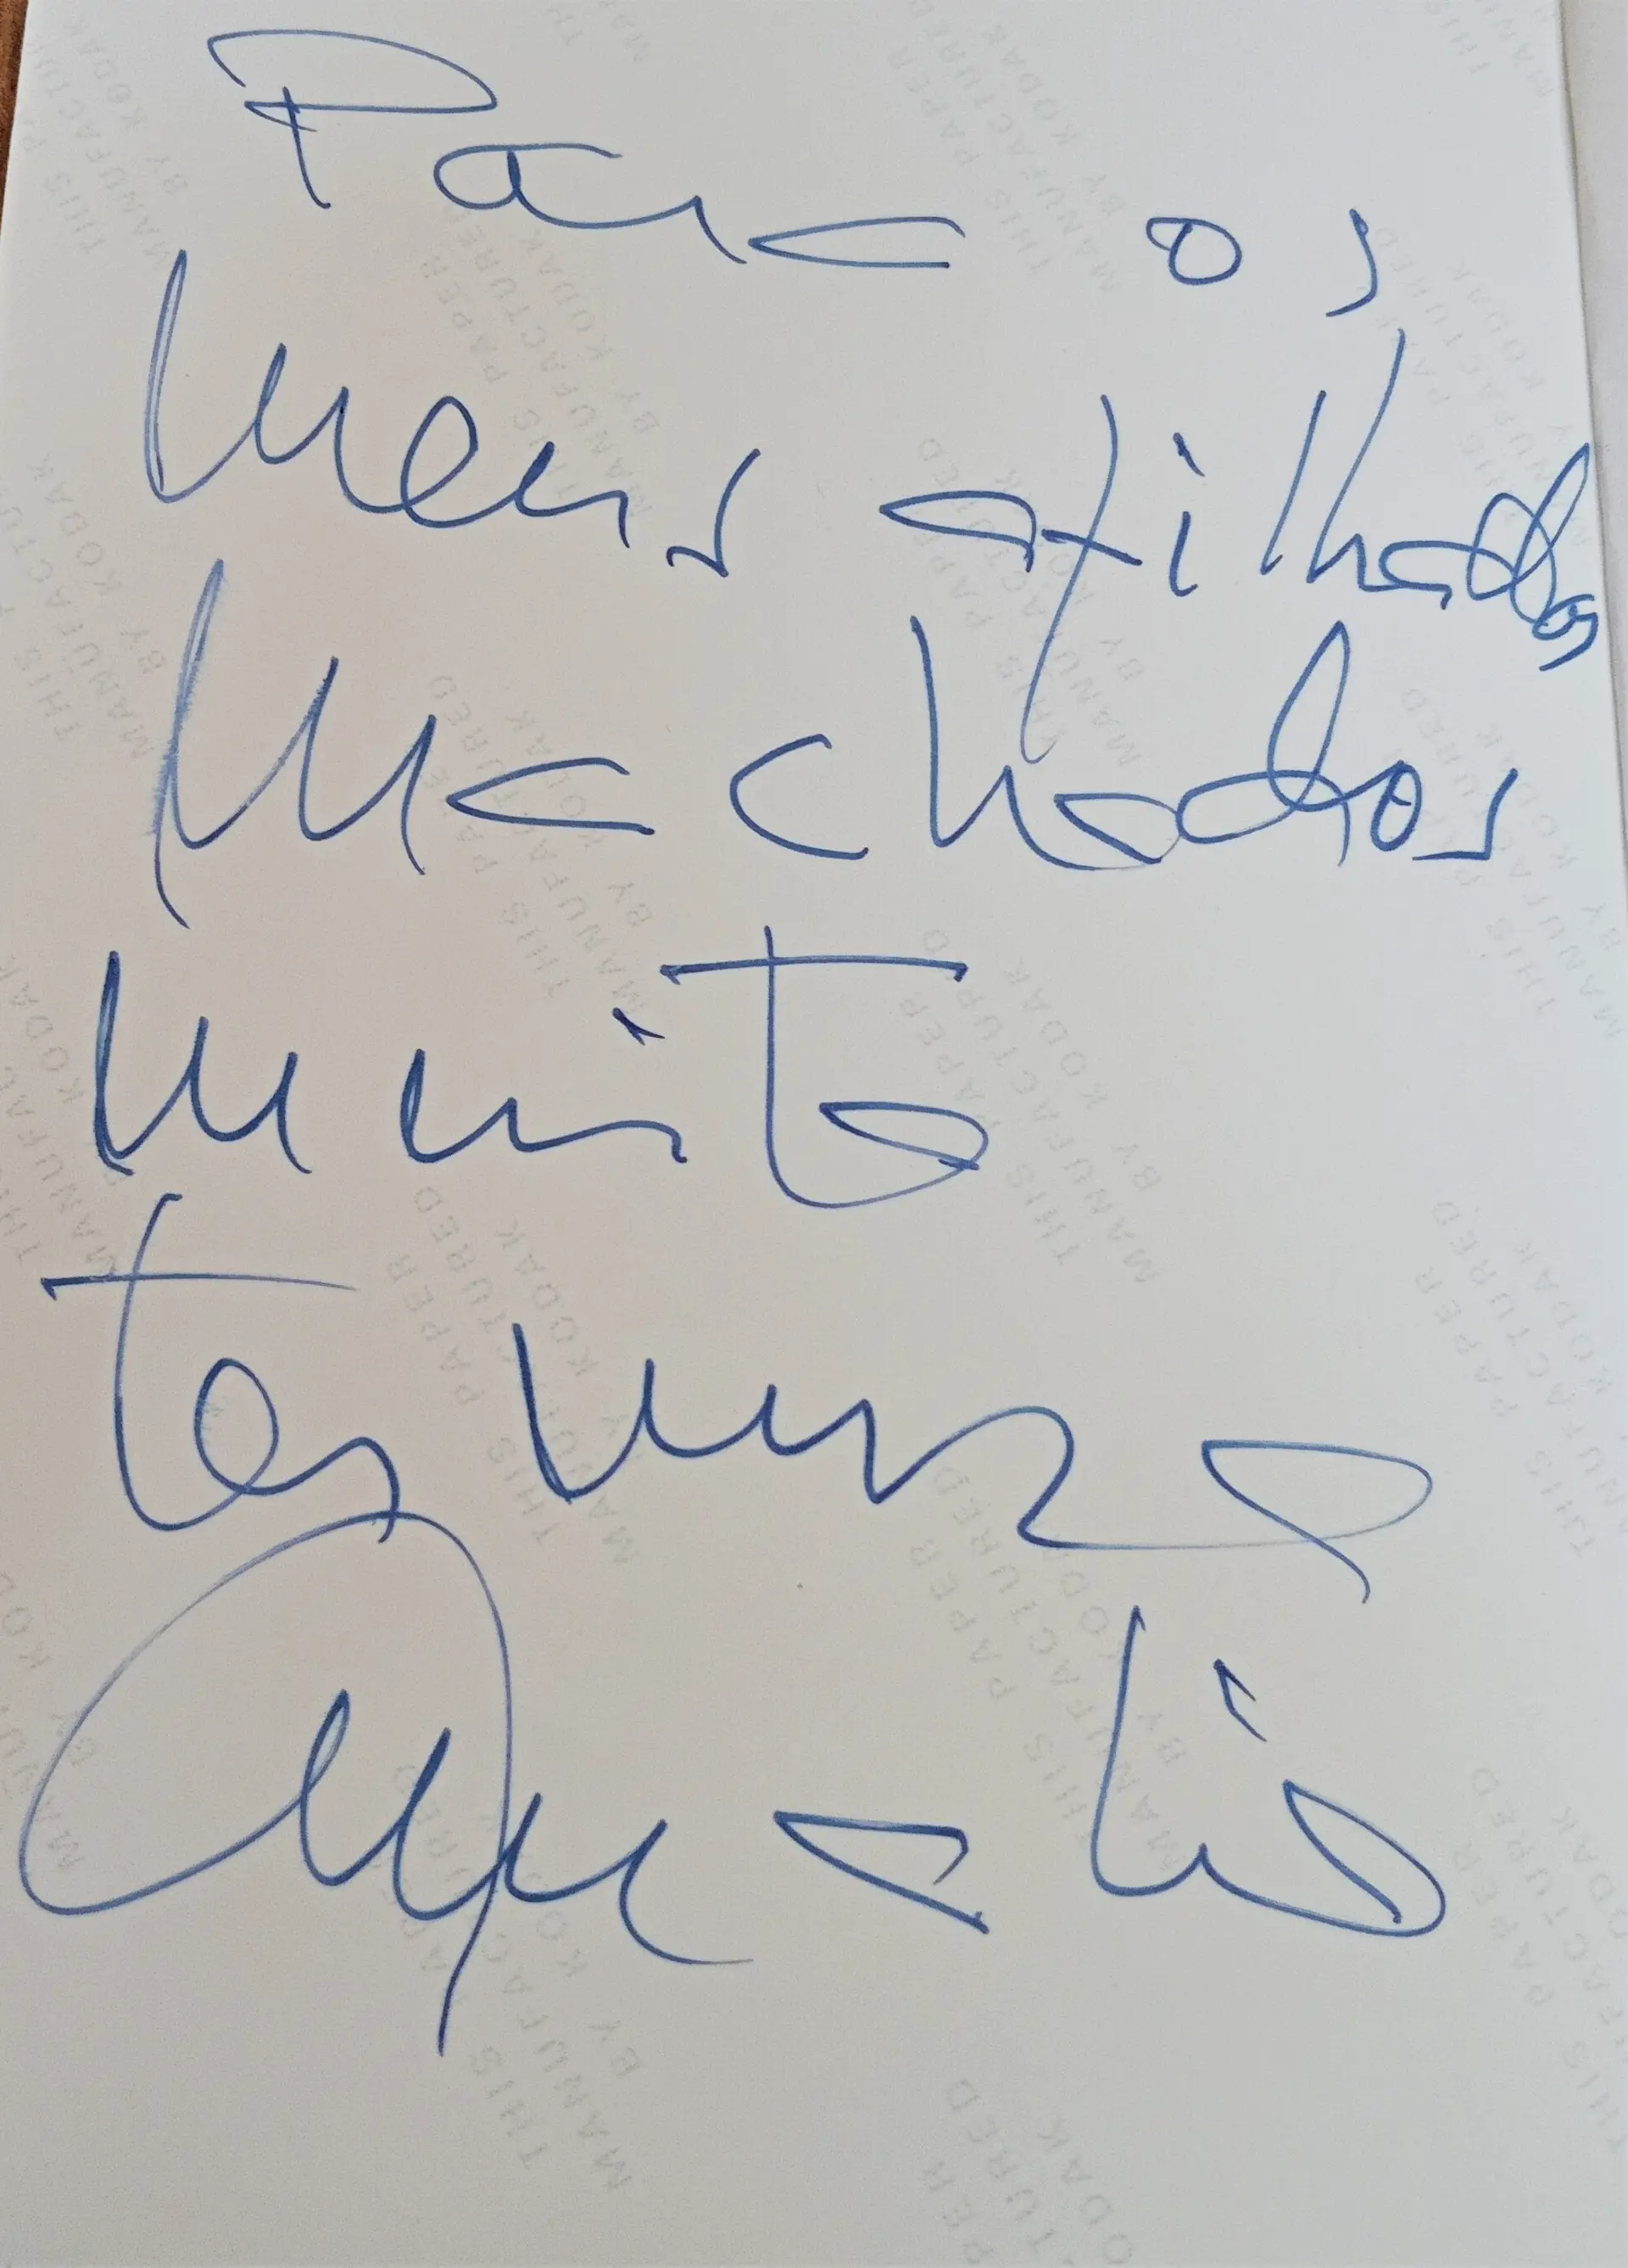 Para os
meus afilhados
Machados
muita
ternura
Amália
THIS PAPER
MANUFACTURED
BY KODAK